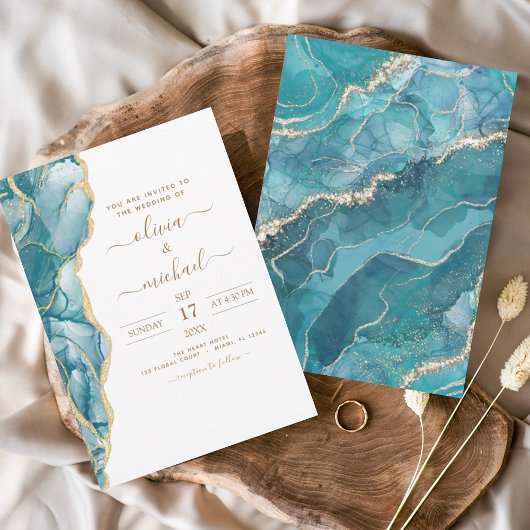 YOU ARE INVITED TO
THE WEDDING OF
olivia
&
michael
SEP
SUNDAY 17 AT 4:30 PM
20XX
THE HEART HOTEL
123 FLORAL COURT · MIAMI, FL 12345
reception to follow